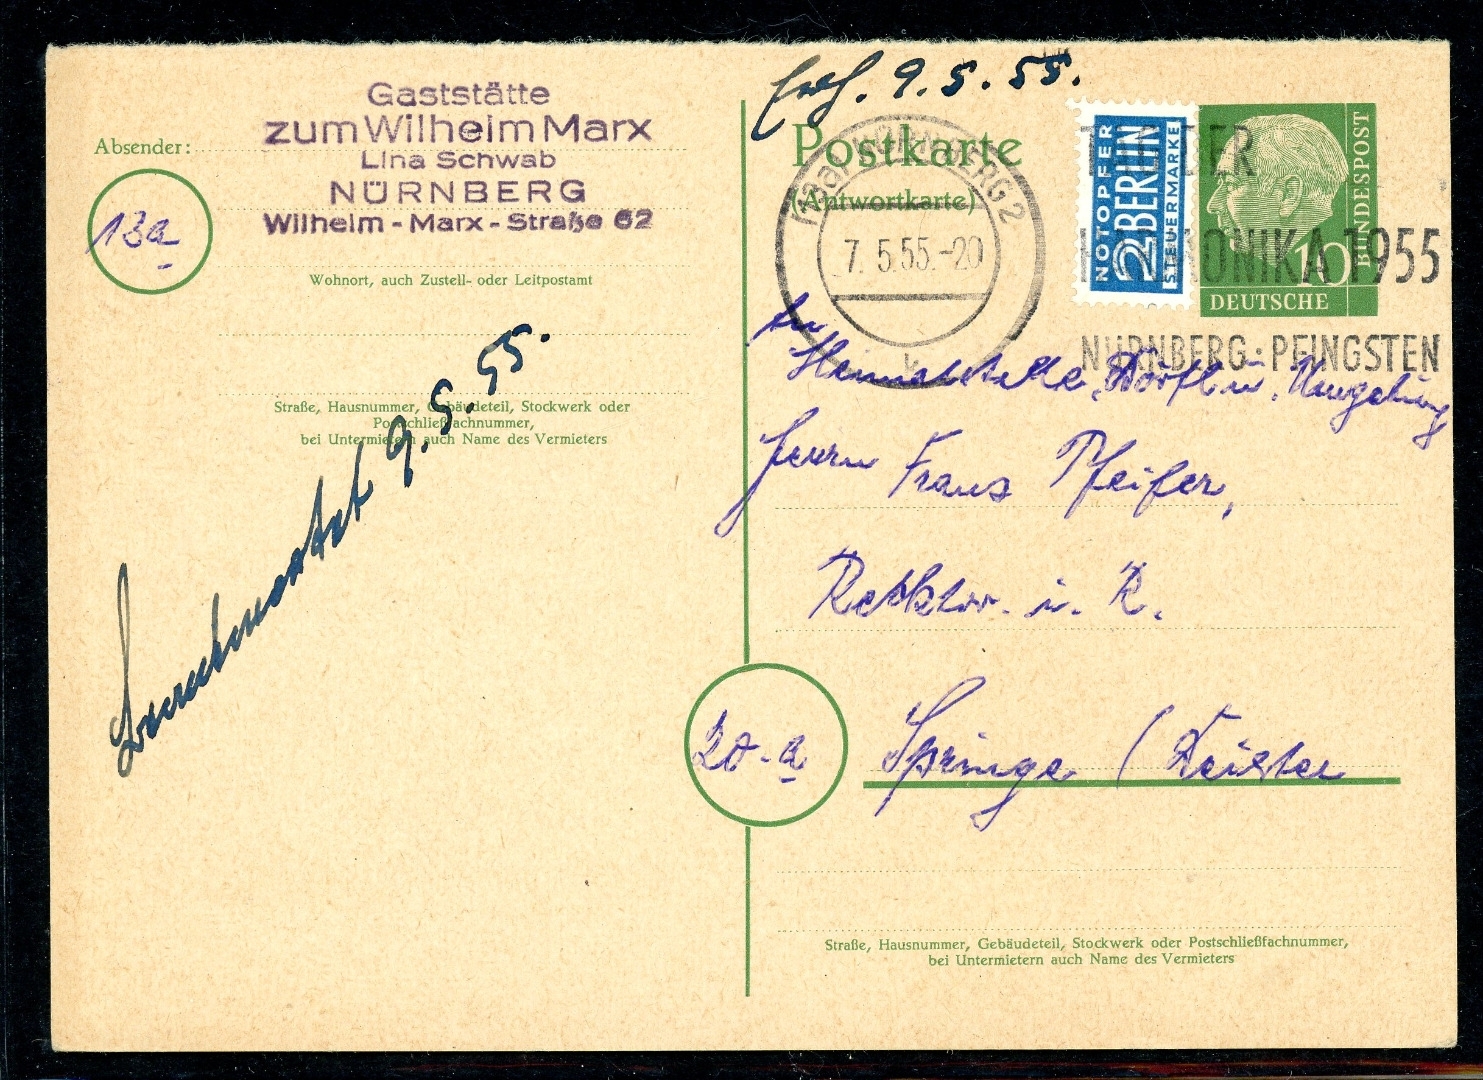 Absender:
Gaststätte
zum Wilhelm Marx
Lina Schwab
NÜRNBERG
Wilhelm - Marx - Straße 62
13a
Wohnort, auch Zustell- oder Leitpostamt
Straße, Hausnummer, Gebäudeteil, Stockwerk oder
Postschließfachnummer,
bei Untermietern auch Name des Vermieters
9.5.55.
9.5.55.
Postkarte
(Antwortkarte)
(13a) NÜRNBERG 2
7.5.55.-20
k
NOTOPFER
2 BERLIN
STEUERMARKE
DEUTSCHE
BUNDESPOST
10
1955
NÜRNBERG · PFINGSTEN
An
Umgebung
Herrn Franz Pfeifer,
Rektor i. R.
20-a
Springe (Deister
Straße, Hausnummer, Gebäudeteil, Stockwerk oder Postschließfachnummer,
bei Untermietern auch Name des Vermieters